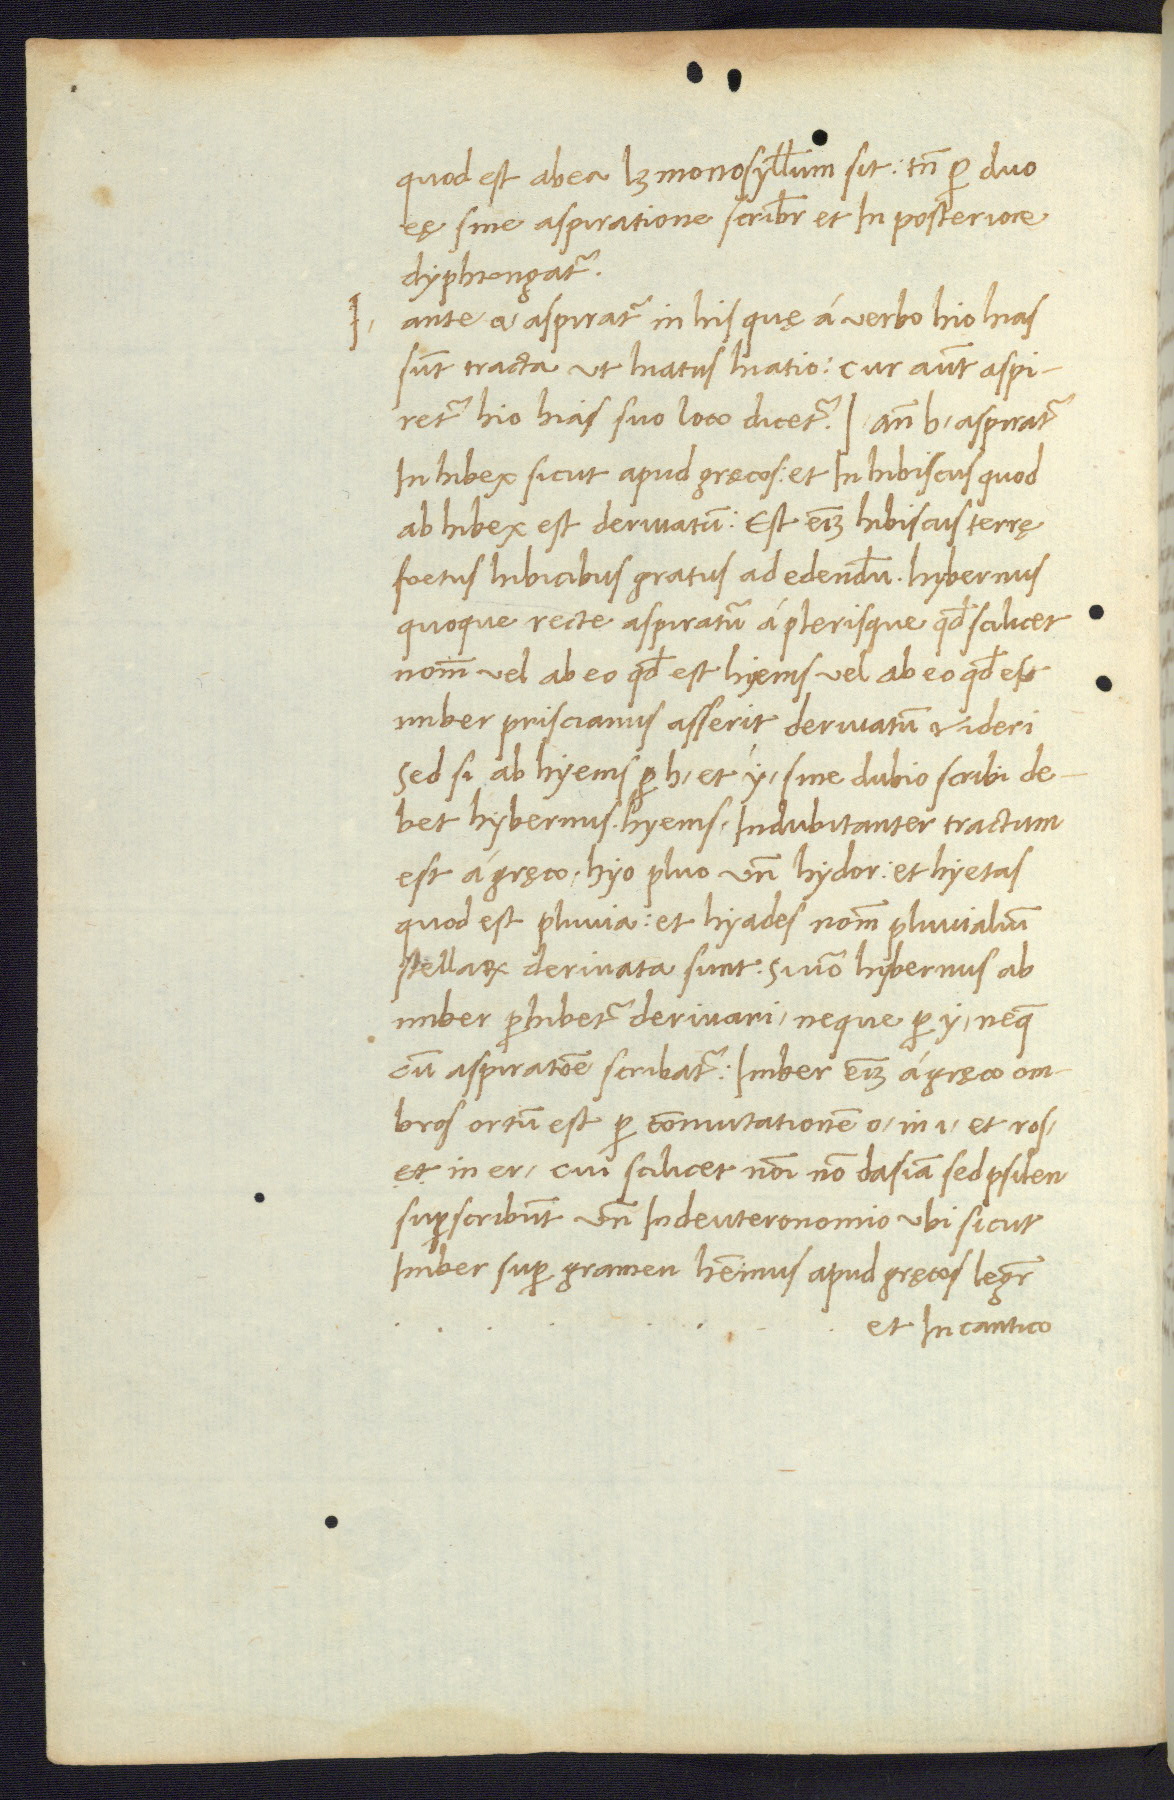 quod est abea lꝫ monosyll̄um sit: tn̄ ꝑ duo
eę sine aspiratione scribr̄ et In posteriore
dyphtongat᷑.
I, ante a, aspirat᷑ in his quę á verbo hio hias
sūt tracta ut hiatus hiatio: cur aūt aspi-
ret᷑ hio hiás suo loco dicet᷑. I, an̄ b, aspirat᷑
In hibex sicut apud gręcos: et In hibiscus quod
ab hibex est deriuatū: Est eīꝫ hibiscus terrę
foetus hibicibus gratus ad edendū. hybernus
quoque recte aspiratū á plerisque qd̄ scilicet
nom̄ vel ab eo qd̄ est hyems vel ab eo qd̄ est
imber priscianus asserit deriuatū videri
Sed si ab hyems ꝑ h, et ý, sine dubio scribi de-
bet hybernus. hyems, Indubitanter tractum
est á gręco, hyo pluo vn̄ hydor: et hyetas
quod est pluuia: et hyades nom̄ pluuialiū
stellaꝝ deriuata sunt: Si uō hybernus ab
imber ꝓhibet᷑ deriuari, neque ꝑ ý, neq̄
cū aspiratōe scribat᷑: Imber eīꝫ á gręco om-
bros ortū est ꝑ cōmutationē o, in i, et ros,
et in er, cui scilicet nōi nō dasiā sed psilen
suꝑscribūt vn̄ In deuteronomio vbi sicut
Imber suꝑ gramen hēmus apud gręcos legr̄
. . . . . . . et In cantico